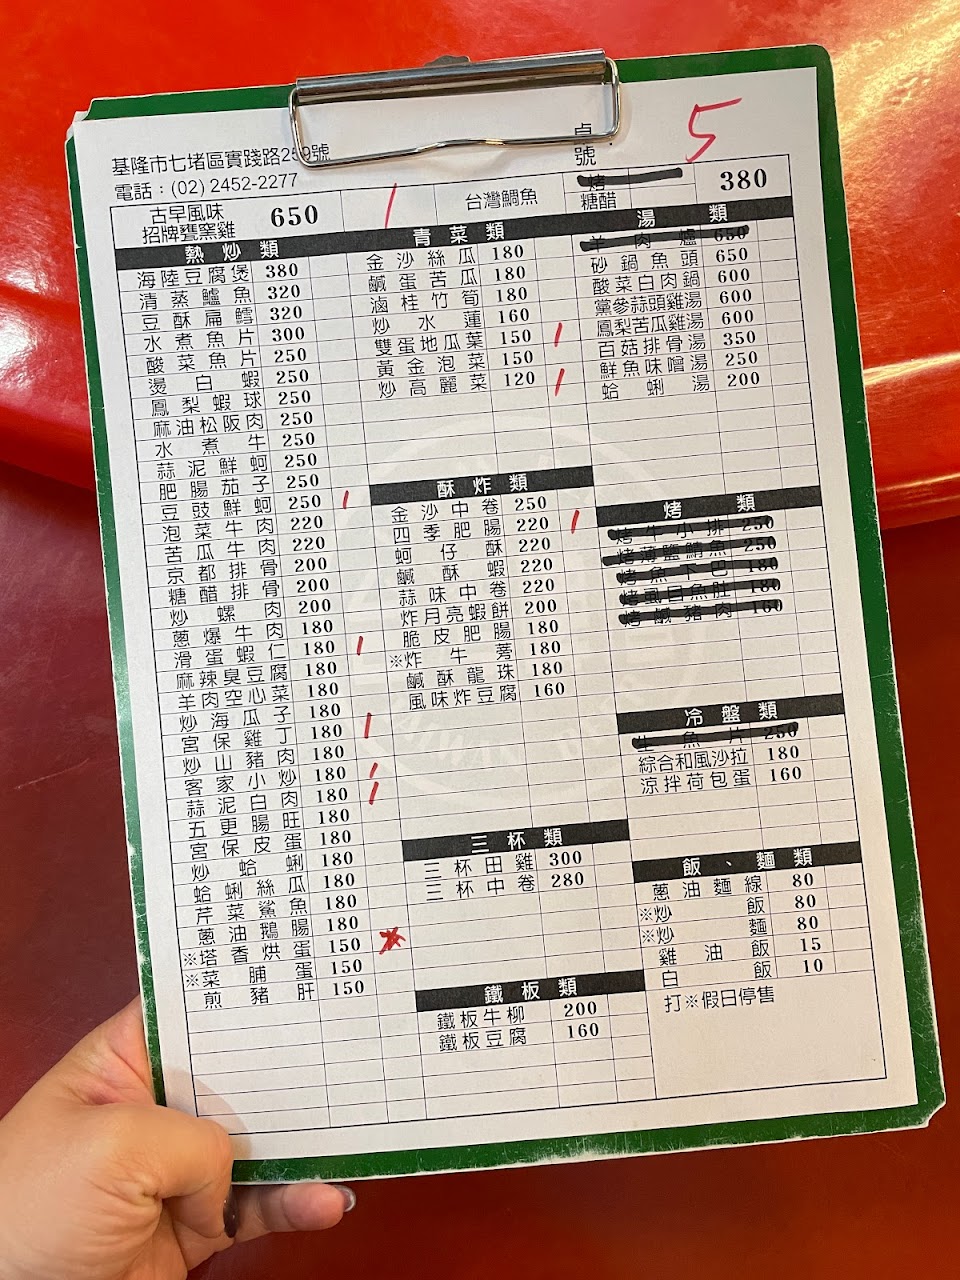 基隆市七堵區實踐路259號
電話：(02) 2452-2277
桌號
5
古早風味招牌甕窯雞 650 /
台灣鯛魚 烤 糖醋 380
熱炒類
海陸豆腐煲 380
清蒸鱸魚 320
豆酥扁鱈 320
水煮魚片 300
酸菜魚片 250
燙白蝦 250
鳳梨蝦球 250
麻油松阪肉 250
水煮牛 250
蒜泥鮮蚵 250
肥腸茄子 250
豆豉鮮蚵 250 /
泡菜牛肉 220
苦瓜牛肉 220
京都排骨 200
糖醋排骨 200
炒螺肉 200
蔥爆牛肉 180
滑蛋蝦仁 180 /
麻辣臭豆腐 180
羊肉空心菜 180
炒海瓜子 180
宮保雞丁 180 /
炒山豬肉 180
客家小炒 180 /
蒜泥白肉 180 /
五更腸旺 180
宮保皮蛋 180
炒蛤蜊 180
蛤蜊絲瓜 180
芹菜鯊魚 180
蔥油鵝腸 180
※塔香烘蛋 150
※菜脯蛋 150
煎豬肝 150
青菜類
金沙絲瓜 180
鹹蛋苦瓜 180
滷桂竹筍 180
炒水蓮 160
雙蛋地瓜葉 150 /
黃金泡菜 150
炒高麗菜 120 /
酥炸類
金沙中卷 250
四季肥腸 220 /
蚵仔酥 220
鹹酥蝦 220
蒜味中卷 220
炸月亮蝦餅 200
脆皮肥腸 180
※炸牛蒡 180
鹹酥龍珠 180
風味炸豆腐 160
三杯類
三杯田雞 300
三杯中卷 280
鐵板類
鐵板牛柳 200
鐵板豆腐 160
湯類
羊肉爐 650
砂鍋魚頭 650
酸菜白肉鍋 600
黨參蒜頭雞湯 600
鳳梨苦瓜雞湯 600
百菇排骨湯 350
鮮魚味噌湯 250
蛤蜊湯 200
烤類
烤牛小排 250
烤薄鹽鯖魚 250
烤魚下巴 180
烤虱目魚肚 180
烤鹹豬肉 160
冷盤類
生魚片 250
綜合和風沙拉 180
涼拌荷包蛋 160
飯、麵類
蔥油麵線 80
※炒飯 80
※炒麵 80
雞油飯 15
白飯 10
打※假日停售